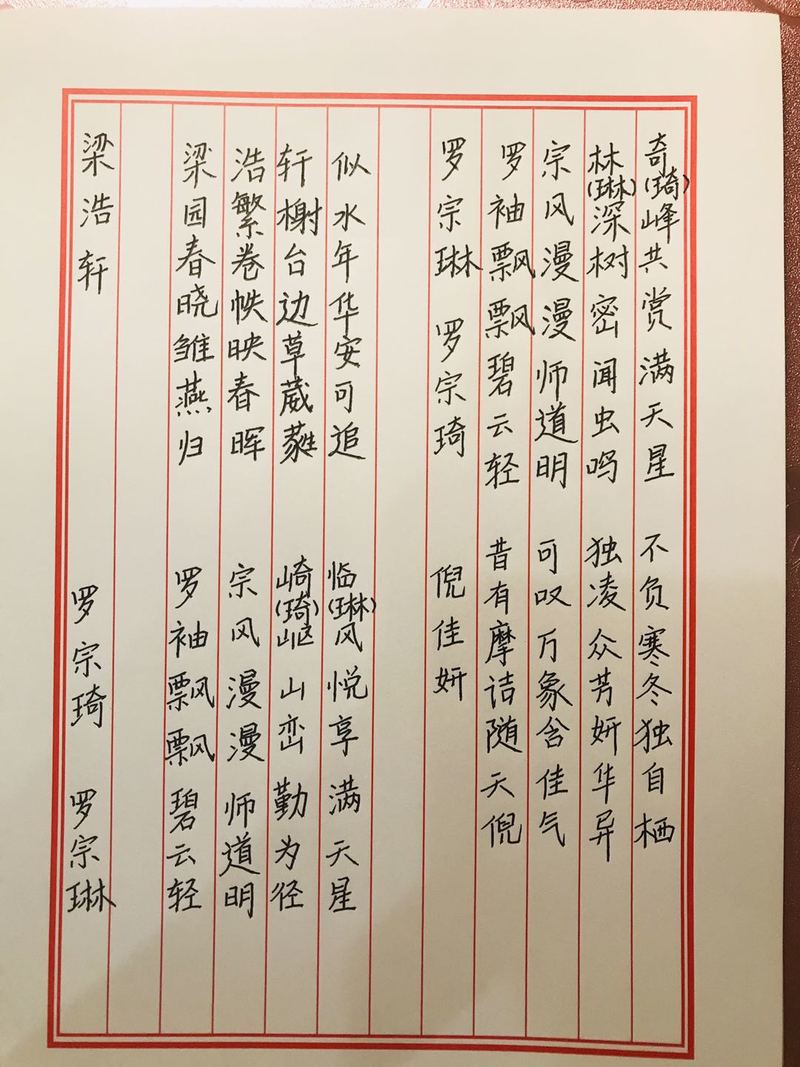 梁浩轩
梁园春晓雏燕归
浩繁卷帙映春晖
轩榭台边草葳蕤
似水年华安可追
罗宗琦 罗宗琳
罗袖飘飘碧云轻
宗风漫漫师道明
崎(琦)岖山峦勤为径
临(琳)风悦享满天星
罗宗琳 罗宗琦
罗袖飘飘碧云轻
宗风漫漫师道明
林(琳)深树密闻虫鸣
奇(琦)峰共赏满天星
倪佳妍
昔有摩诘随天倪
可叹万象含佳气
独凌众芳妍华异
不负寒冬独自栖